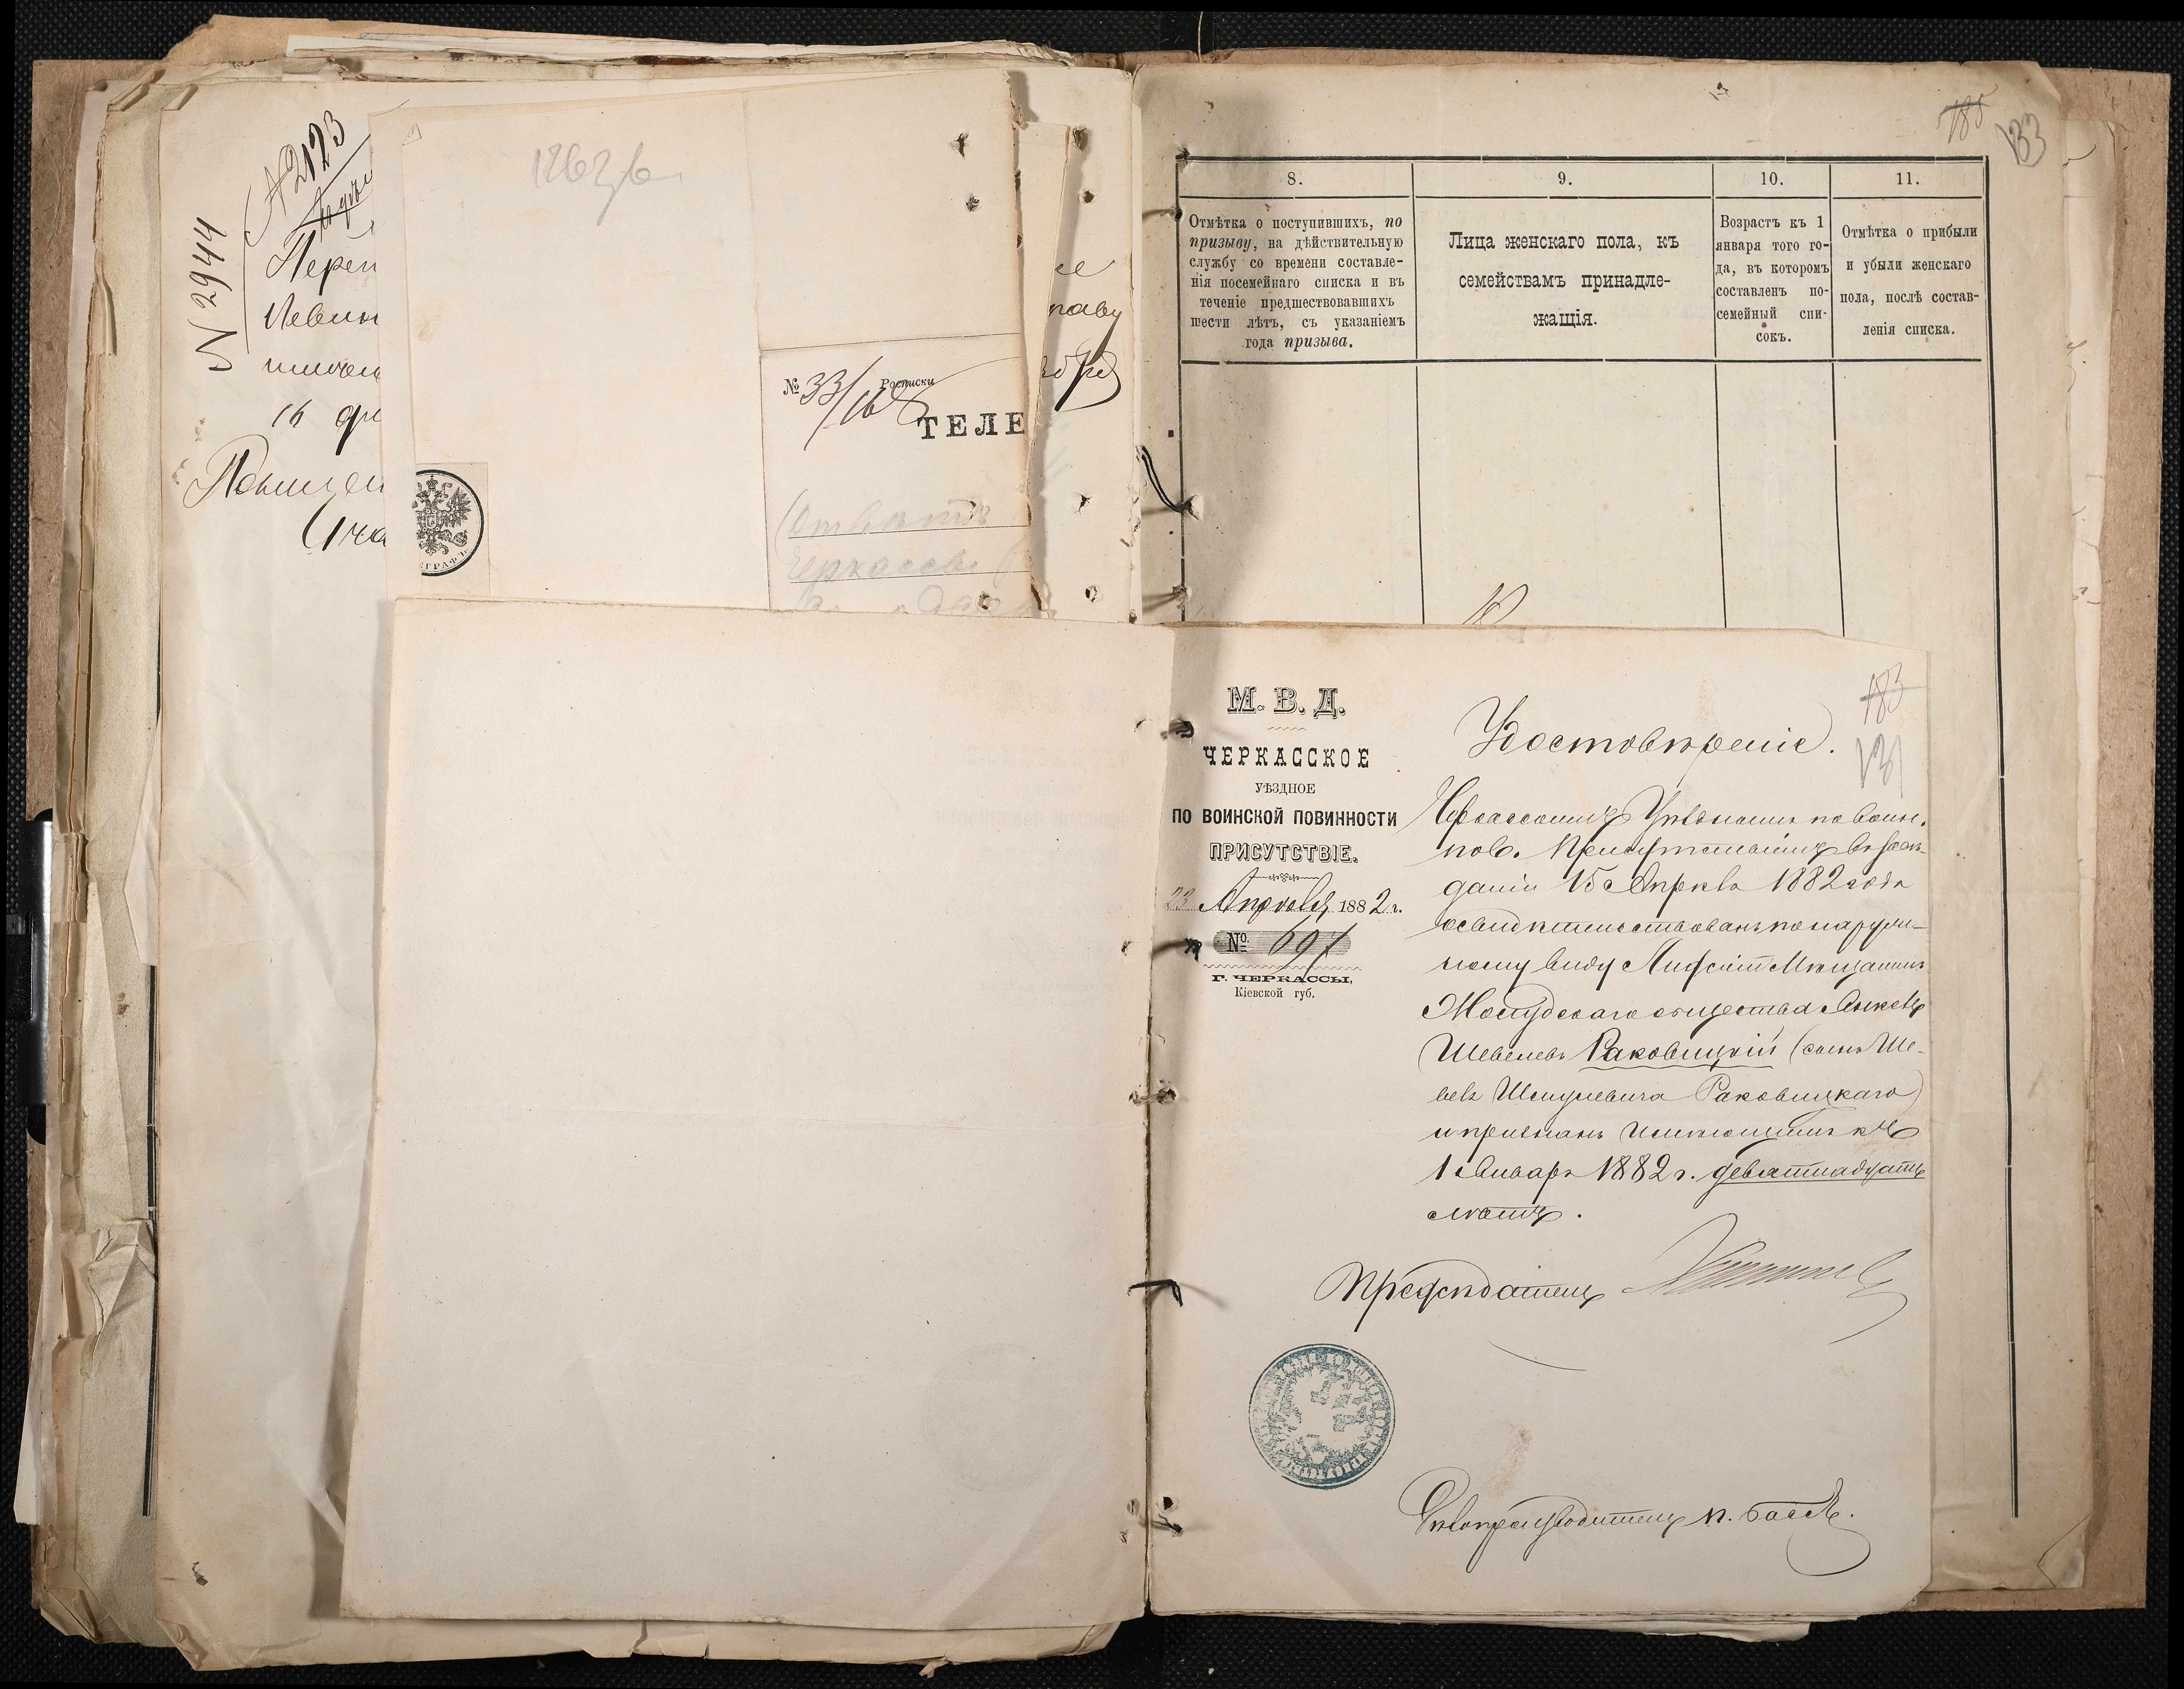 № 2944
№ 2123
Переп
Левин
ТЕЛЕ
№ 33/
Росписки
Черкассы
185
133
8.
9.
10.
11.
Отмѣтка о поступившихъ, по
призыву, на дѣйствительную
службу со времени составле-
нія посемейнаго списка и въ
теченіе предшествовавшихъ
шести лѣтъ, съ указаніемъ
года призыва.
Лица женскаго пола, къ
семействамъ принадле-
жащія.
Возрастъ къ 1
января того го-
да, въ которомъ
составленъ по-
семейный спи-
сокъ.
Отмѣтка о прибыли
и убыли женскаго
пола, послѣ состав-
ленія списка.
М. В. Д.
ЧЕРКАССКОЕ
УѢЗДНОЕ
ПО ВОИНСКОЙ ПОВИННОСТИ
ПРИСУТСТВІЕ.
23 Апрѣля 1882 г.
№ 697
Г. ЧЕРКАССЫ,
Кіевской губ.
183
131
Удостовѣреніе.
Черкасскимъ Уѣзднымъ по воин.
пов. Присутствіемъ въ засѣ-
даніи 15 Апрѣля 1882 года
освидѣтельствованъ по наруж-
ному виду Мѣщанинъ
общества
Шевелевъ Раковицкій (сынъ Ше-
веля Шмулевича Раковицкаго)
и признанъ имѣющимъ къ
1 Января 1882 г. девятнадцать
лѣтъ.
Предсѣдатель
Дѣлопроизводитель